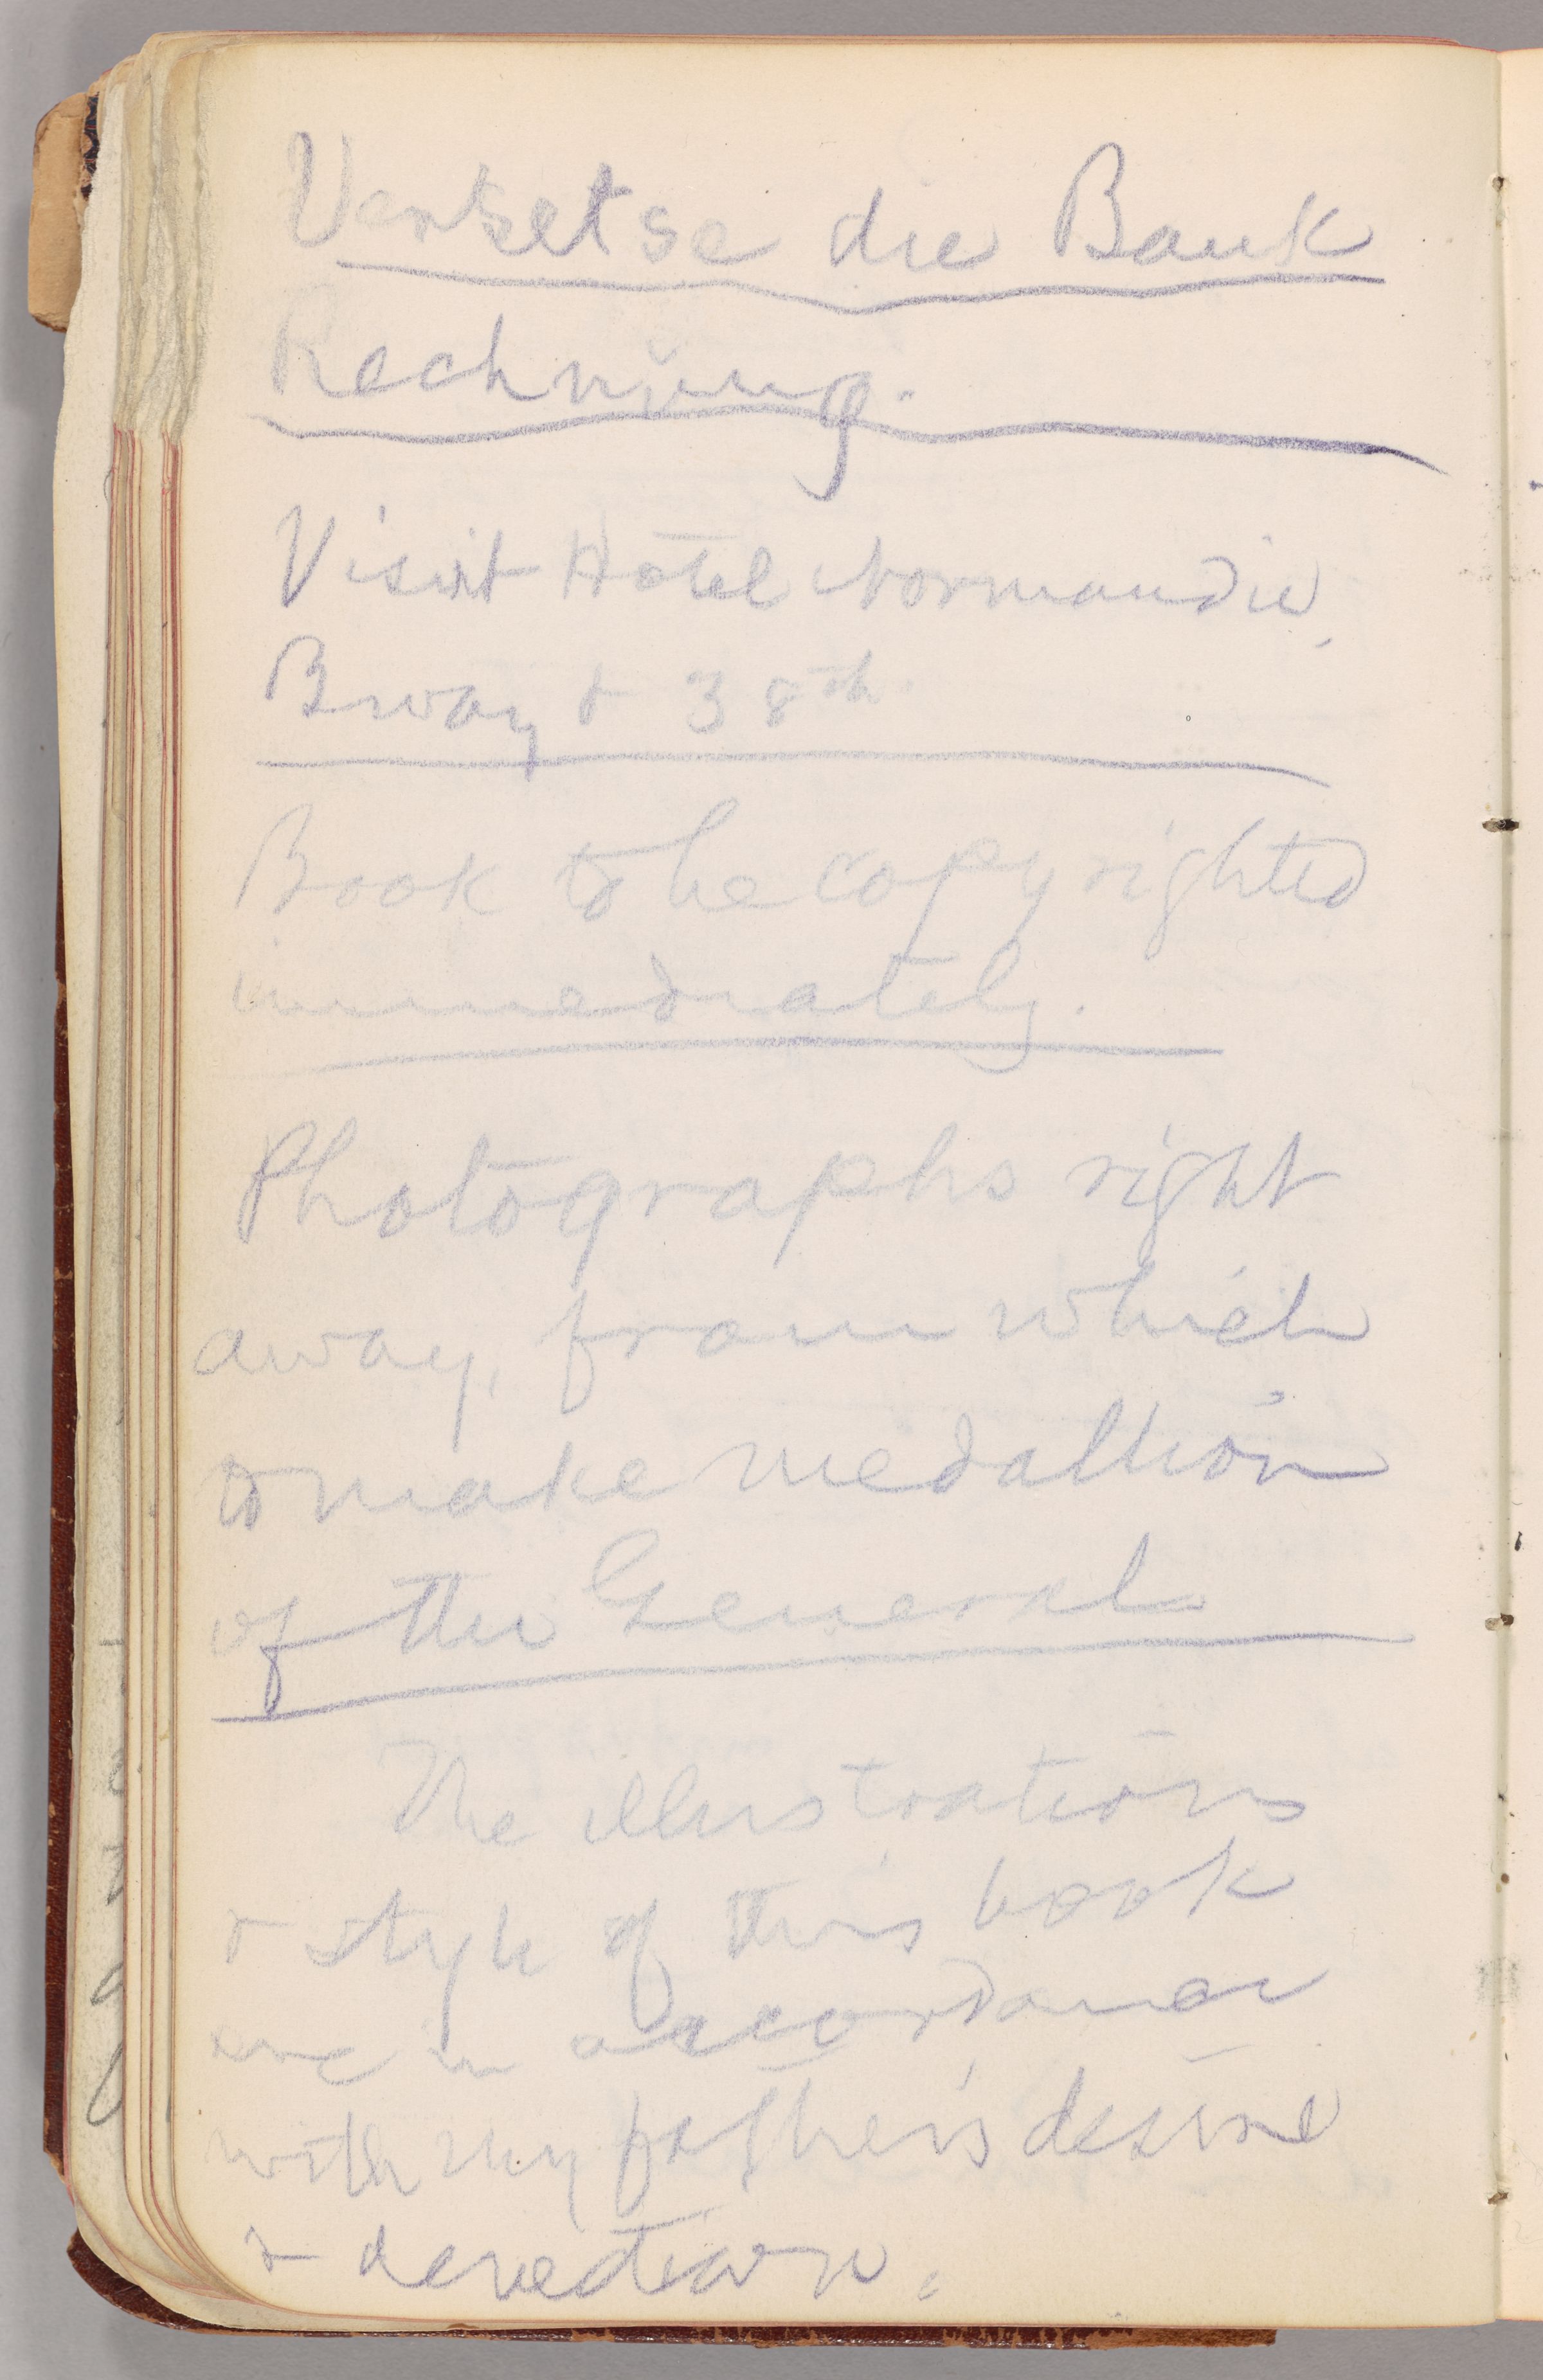 Versetse die Bank
Rechnŭng.
Visit Hotel Normandie,
Bway & 38th.
Book to be copyrighted
immediately.
Photographs right
away, from which
to make medallion
of the General
The illustrations
& style of this book
are in accordance
with my father's desire
& derection.